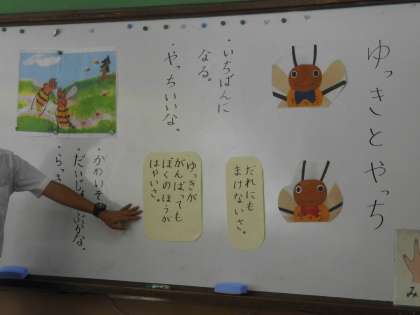 ゆっきとやっち
・いちばんに
なる。
・やっちいいな。
だれにも
まけないさ。
ゆっきが
がんばっても
ぼくのほうが
はやいさ。
・かわいそ
・だいじ
ぶかな。
・らっき
み